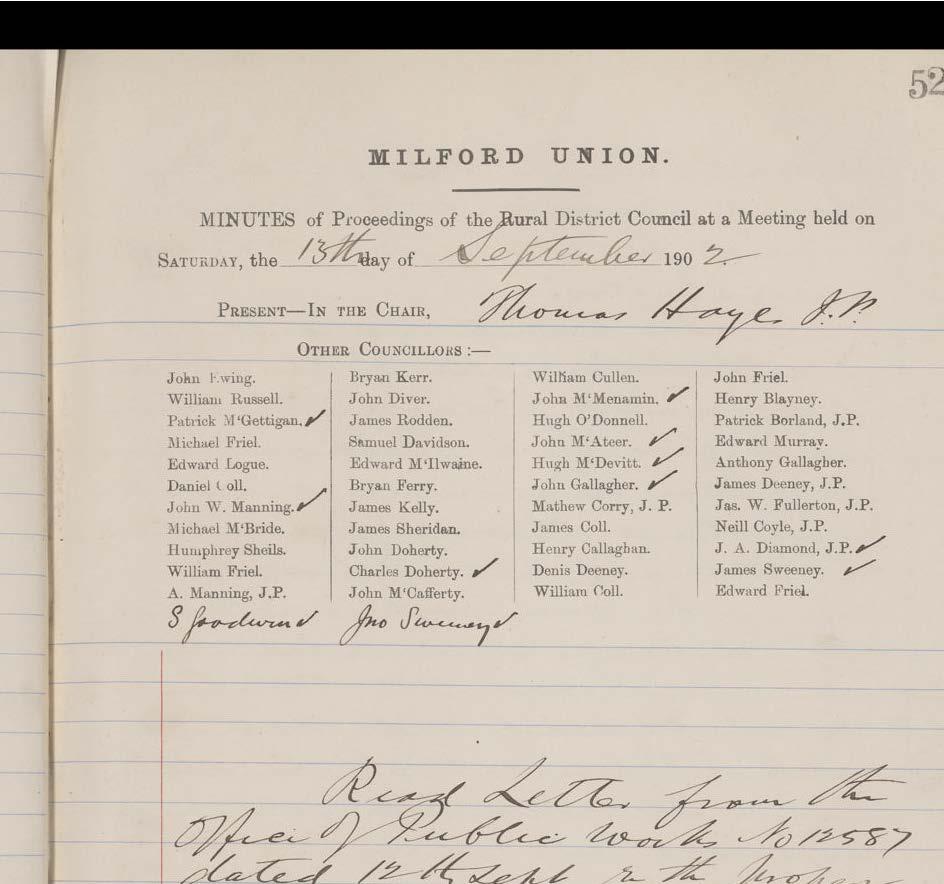 52
MILFORD UNION.
MINUTES of Proceedings of the Rural District Council at a Meeting held on
SATURDAY, the 13th day of September 1902
PRESENT—IN THE CHAIR, Thomas Hayes J.P.
OTHER COUNCILLORS :—
John Ewing. Bryan Kerr. William Cullen. John Friel.
William Russell. John Diver. John M‘Menamin. ✓ Henry Blayney.
Patrick M‘Gettigan. ✓ James Rodden. Hugh O’Donnell. Patrick Borland, J.P.
Michael Friel. Samuel Davidson. John M‘Ateer. ✓ Edward Murray.
Edward Logue. Edward M‘Ilwaine. Hugh M‘Devitt. ✓ Anthony Gallagher.
Daniel Coll. Bryan Ferry. John Gallagher. ✓ James Deeney, J.P.
John W. Manning. ✓ James Kelly. Mathew Corry, J. P. Jas. W. Fullerton, J.P.
Michael M‘Bride. James Sheridan. James Coll. Neill Coyle, J.P.
Humphrey Sheils. John Doherty. Henry Callaghan. J. A. Diamond, J.P. ✓
William Friel. Charles Doherty. ✓ Denis Deeney. James Sweeney. ✓
A. Manning, J.P. John M‘Cafferty. William Coll. Edward Friel.
S Goodwin ✓ Jno Sweeney ✓
Read Letter from the
Office of Public Works No 12587
dated 12th Sept